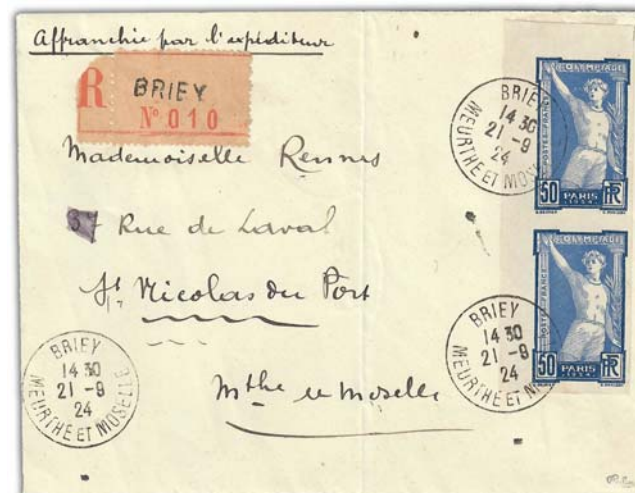 Affranchie par l'expéditeur
R BRIEY
N° 010
Mademoiselle Rennes
37 Rue de Laval
St Nicolas du Port
Mthe et Moselle
BRIEY
14 30
21 - 9
24
MEURTHE ET MOSELLE
BRIEY
14 30
21 - 9
24
MEURTHE ET MOS
8E OLYMPIADE
POSTES FRANCE
50 PARIS RF
1924
BRIEY
14 30
21 - 9
24
MEURTHE ET M
8E OLYMPIADE
POSTES FRANCE
50 PARIS RF
1924